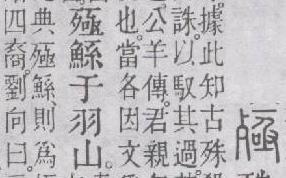 據此知古殊
誅以馭其過
公羊傳君親
也當各因文
殛鯀于羽山
典殛鯀則爲
四裔劉向曰